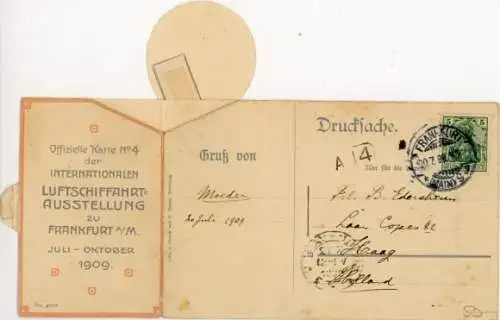 Offizielle Karte No 4
der
INTERNATIONALEN
LUFTSCHIFFAHRT-
AUSSTELLUNG
zu
FRANKFURT a/M.
JULI - OKTOBER
1909.
Ges. gesch.
Gruß von
Moeder
20 Juli 1909
Drucksache.
A 4
Nur für die
FRANKFURT
(MAIN)
5
Laan Copes
Haag
Holland